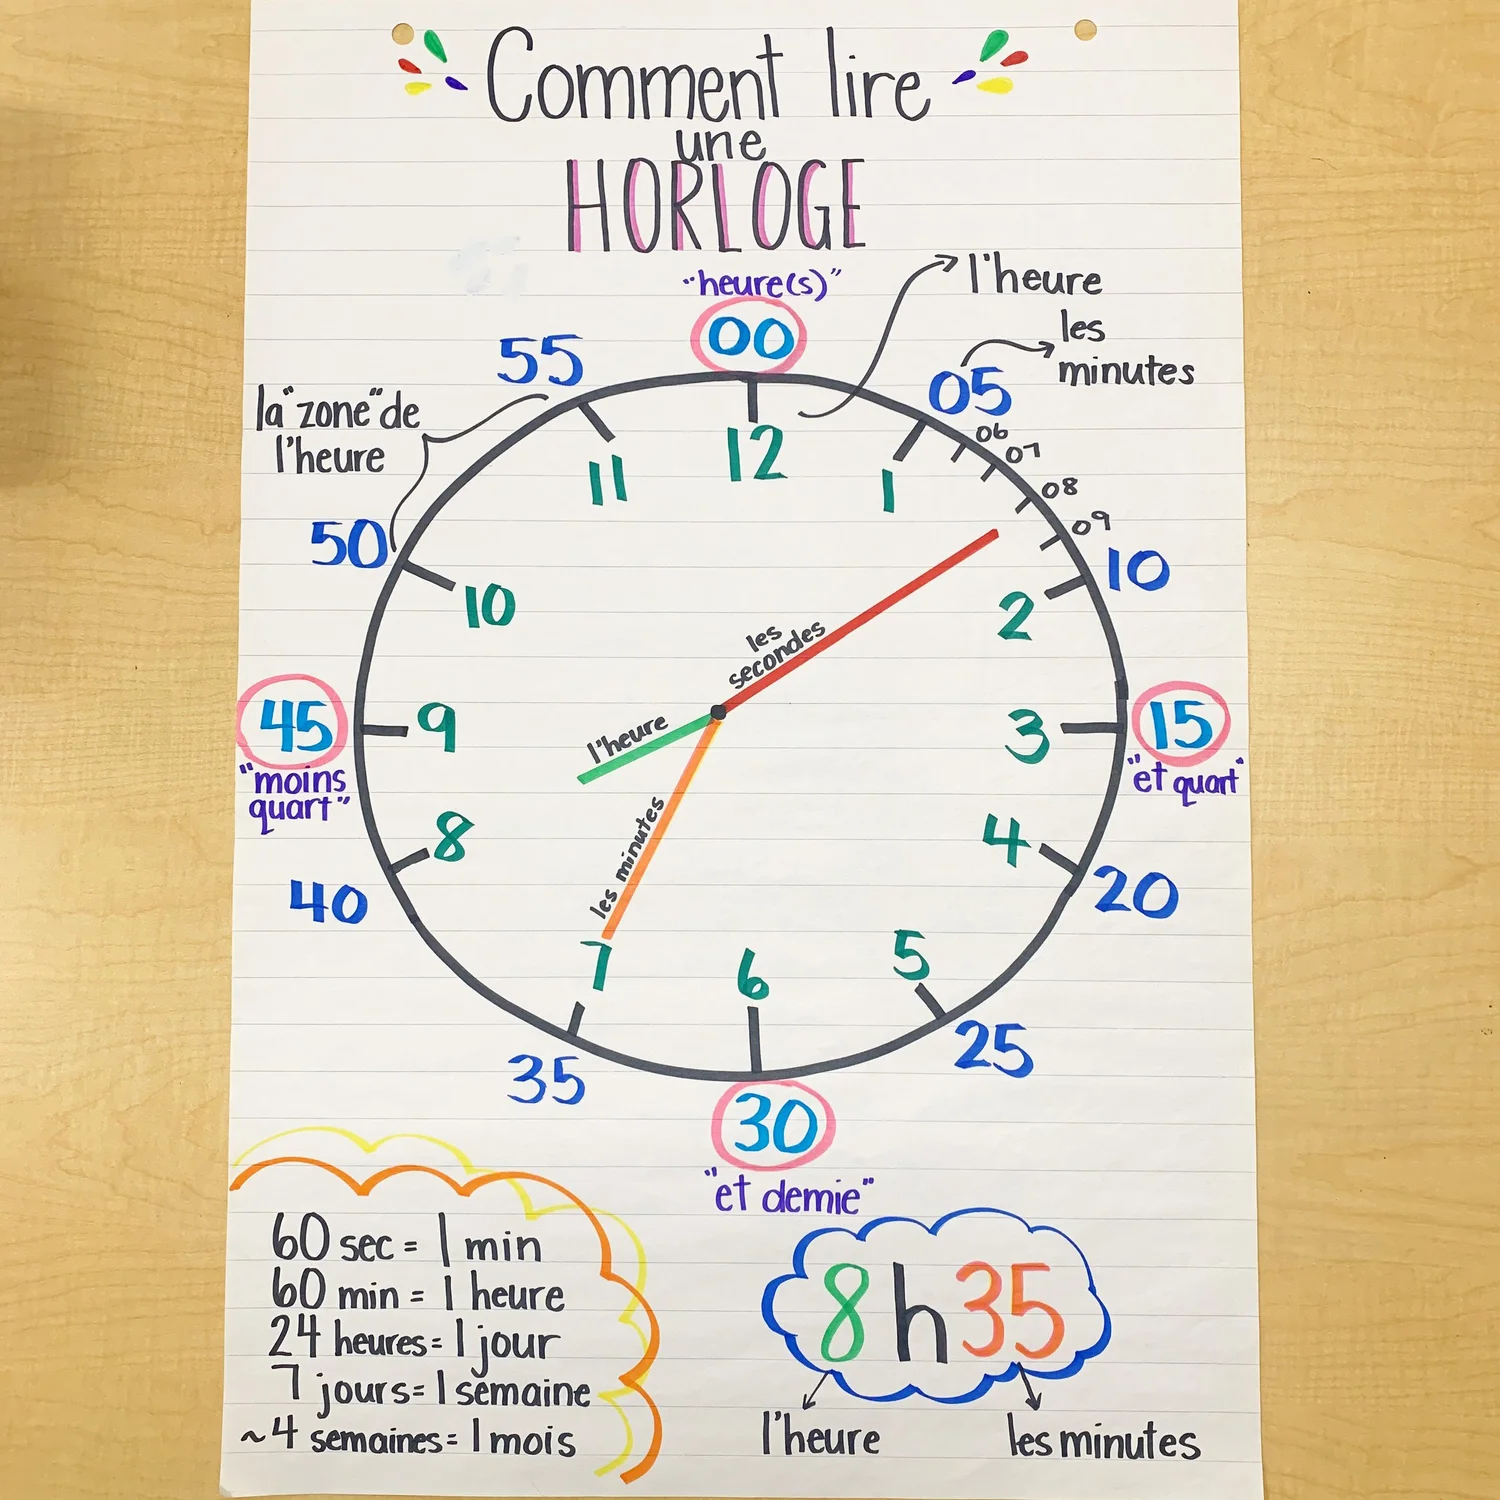 Comment lire
une
HORLOGE
"heure(s)"
l'heure
les
minutes
la "zone" de
l'heure
00
05
06
07
08
09
10
15
"et quart"
20
25
30
"et demie"
35
40
45
"moins
quart"
50
55
12
1
2
3
4
5
6
7
8
9
10
11
les
secondes
l'heure
les minutes
60 sec = 1 min
60 min = 1 heure
24 heures = 1 jour
7 jours = 1 semaine
~4 semaines = 1 mois
8h35
l'heure
les minutes